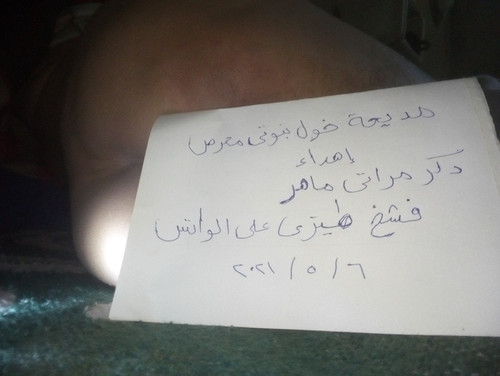 مديحة خول بنوتى معرص
إهداء
دكر مراتى ماهر
فشخ طيزى على الواتس
٢٠٢١ / ٥ / ٦